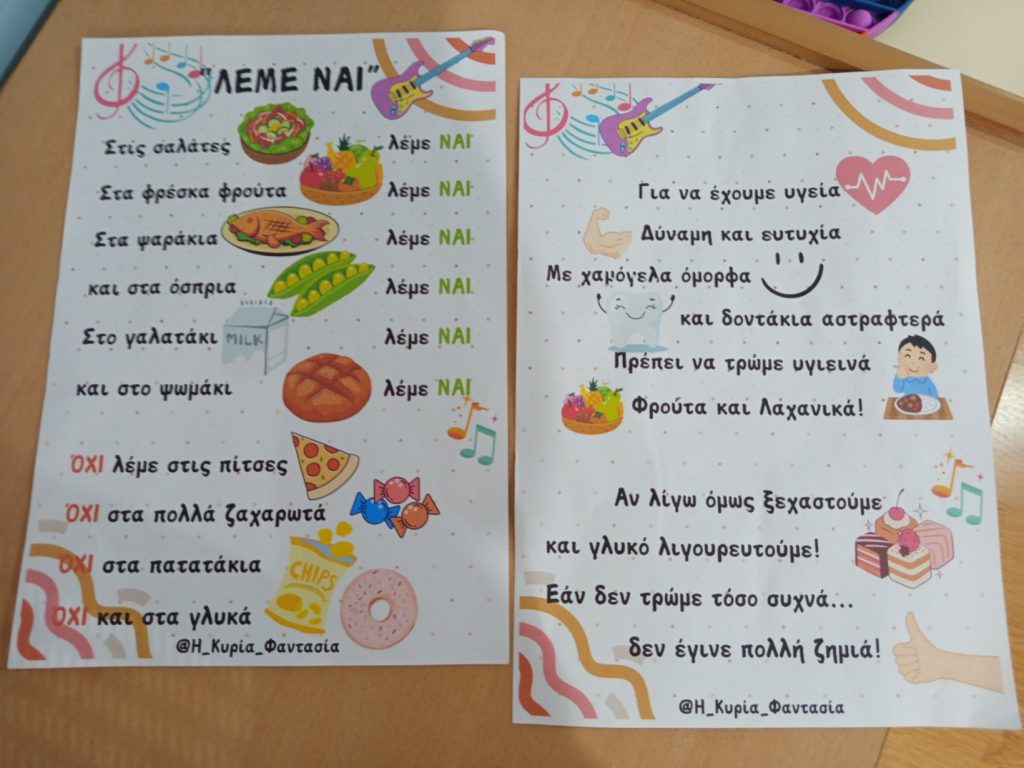 "ΛΕΜΕ ΝΑΙ"
Στις σαλάτες λέμε ΝΑΙ
Στα φρέσκα φρούτα λέμε ΝΑΙ
Στα ψαράκια λέμε ΝΑΙ
και στα όσπρια λέμε ΝΑΙ
Στο γαλατάκι MILK λέμε ΝΑΙ
και στο ψωμάκι λέμε ΝΑΙ
ΌΧΙ λέμε στις πίτσες
ΌΧΙ στα πολλά ζαχαρωτά
ΌΧΙ στα πατατάκια
CHIPS
ΌΧΙ και στα γλυκά
@Η_Κυρία_Φαντασία
Για να έχουμε υγεία
Δύναμη και ευτυχία
Με χαμόγελα όμορφα
και δοντάκια αστραφτερά
Πρέπει να τρώμε υγιεινά
Φρούτα και Λαχανικά!
Αν λίγω όμως ξεχαστούμε
και γλυκό λιγουρευτούμε!
Εάν δεν τρώμε τόσο συχνά...
δεν έγινε πολλή ζημιά!
@Η_Κυρία_Φαντασία